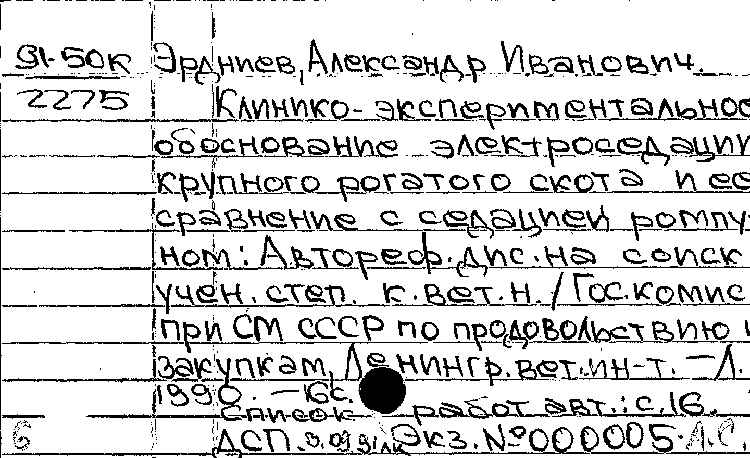 91-50к Эрдниев, Александр Иванович.
2275 Клинико-экспериментальнос
обоснование электроседации
крупного рогатого скота и ее
сравнение с седацией ромпу-
ном: Автореф. дис. на соиск
учен. степ. к.вет.н./Гос.комис
при СМ СССР по продовольствию и
закупкам, Ленингр.вет.ин-т. – Л.
1990. – 16с.
Список работ авт.: с.16.
6 ДСП. Экз. №000005